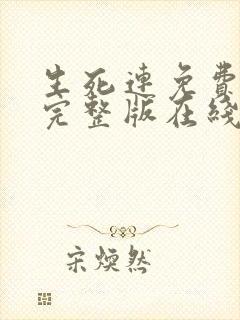 生死連免費
完整版在綫
宋煥然